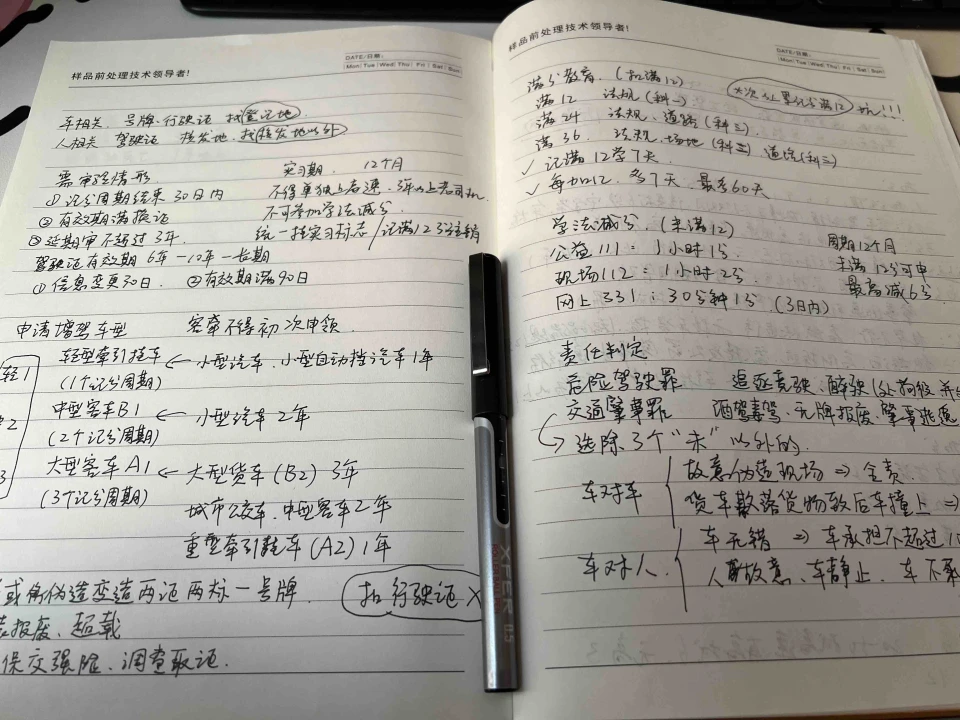 样品前处理技术领导者!
DATE/日期:
Mon Tue Wed Thu Fri Sat Sun
车相关 号牌、行驶证 找登记地
人相关 驾驶证 核发地、找核发地以外
需审验情形 实习期 12个月
①记分周期结束30日内 不得单独上高速、3年以上老司机
②有效期满换证 不可参加学法减分
③延期审不超过3年. 统一挂实习标志/记满12分注销
驾驶证有效期 6年-10年-长期
①信息变更30日. ②有效期满90日
申请增驾车型 客牵不得初次申领.
轻型牵引挂车 ← 小型汽车、小型自动挡汽车1年
(1个记分周期)
轻1
中型客车B1 ← 小型汽车2年
(2个记分周期)
2
大型客车A1 ← 大型货车(B2)3年
(3个记分周期)
3
城市公交车、中型客车2年
重型牵引挂车(A2)1年
或使伪造变造两证两标一号牌
扣行驶证X
报废、超载
保交强险、调查取证.
XPER 0.5
样品前处理技术领导者!
DATE/日期:
Mon Tue Wed Thu Fri Sat Sun
满分教育. (扣满12)
满12 法规(科一)
满24 法规、道路(科三)
满36. 法规、场地(科二) 道路(科三)
✓ 记满12学7天.
✓ 每加12. 多7天 最多60天
学法减分 (未满12)
公益111: 1小时1分 周期12个月
现场112: 1小时2分 未满12分可申
网上331: 30分钟1分 (3日内) 最高减6分
责任判定
危险驾驶罪 追逐竞驶、醉驶
交通肇事罪 酒驾毒驾、无牌报废、肇事逃逸
选除3个"未"以外的.
车对车 故意伪造现场 ⇒ 全责.
货车散落货物致后车撞上 ⇒
车对人. 车无错 ⇒ 车承担不超过
故意、车静止. 车不承